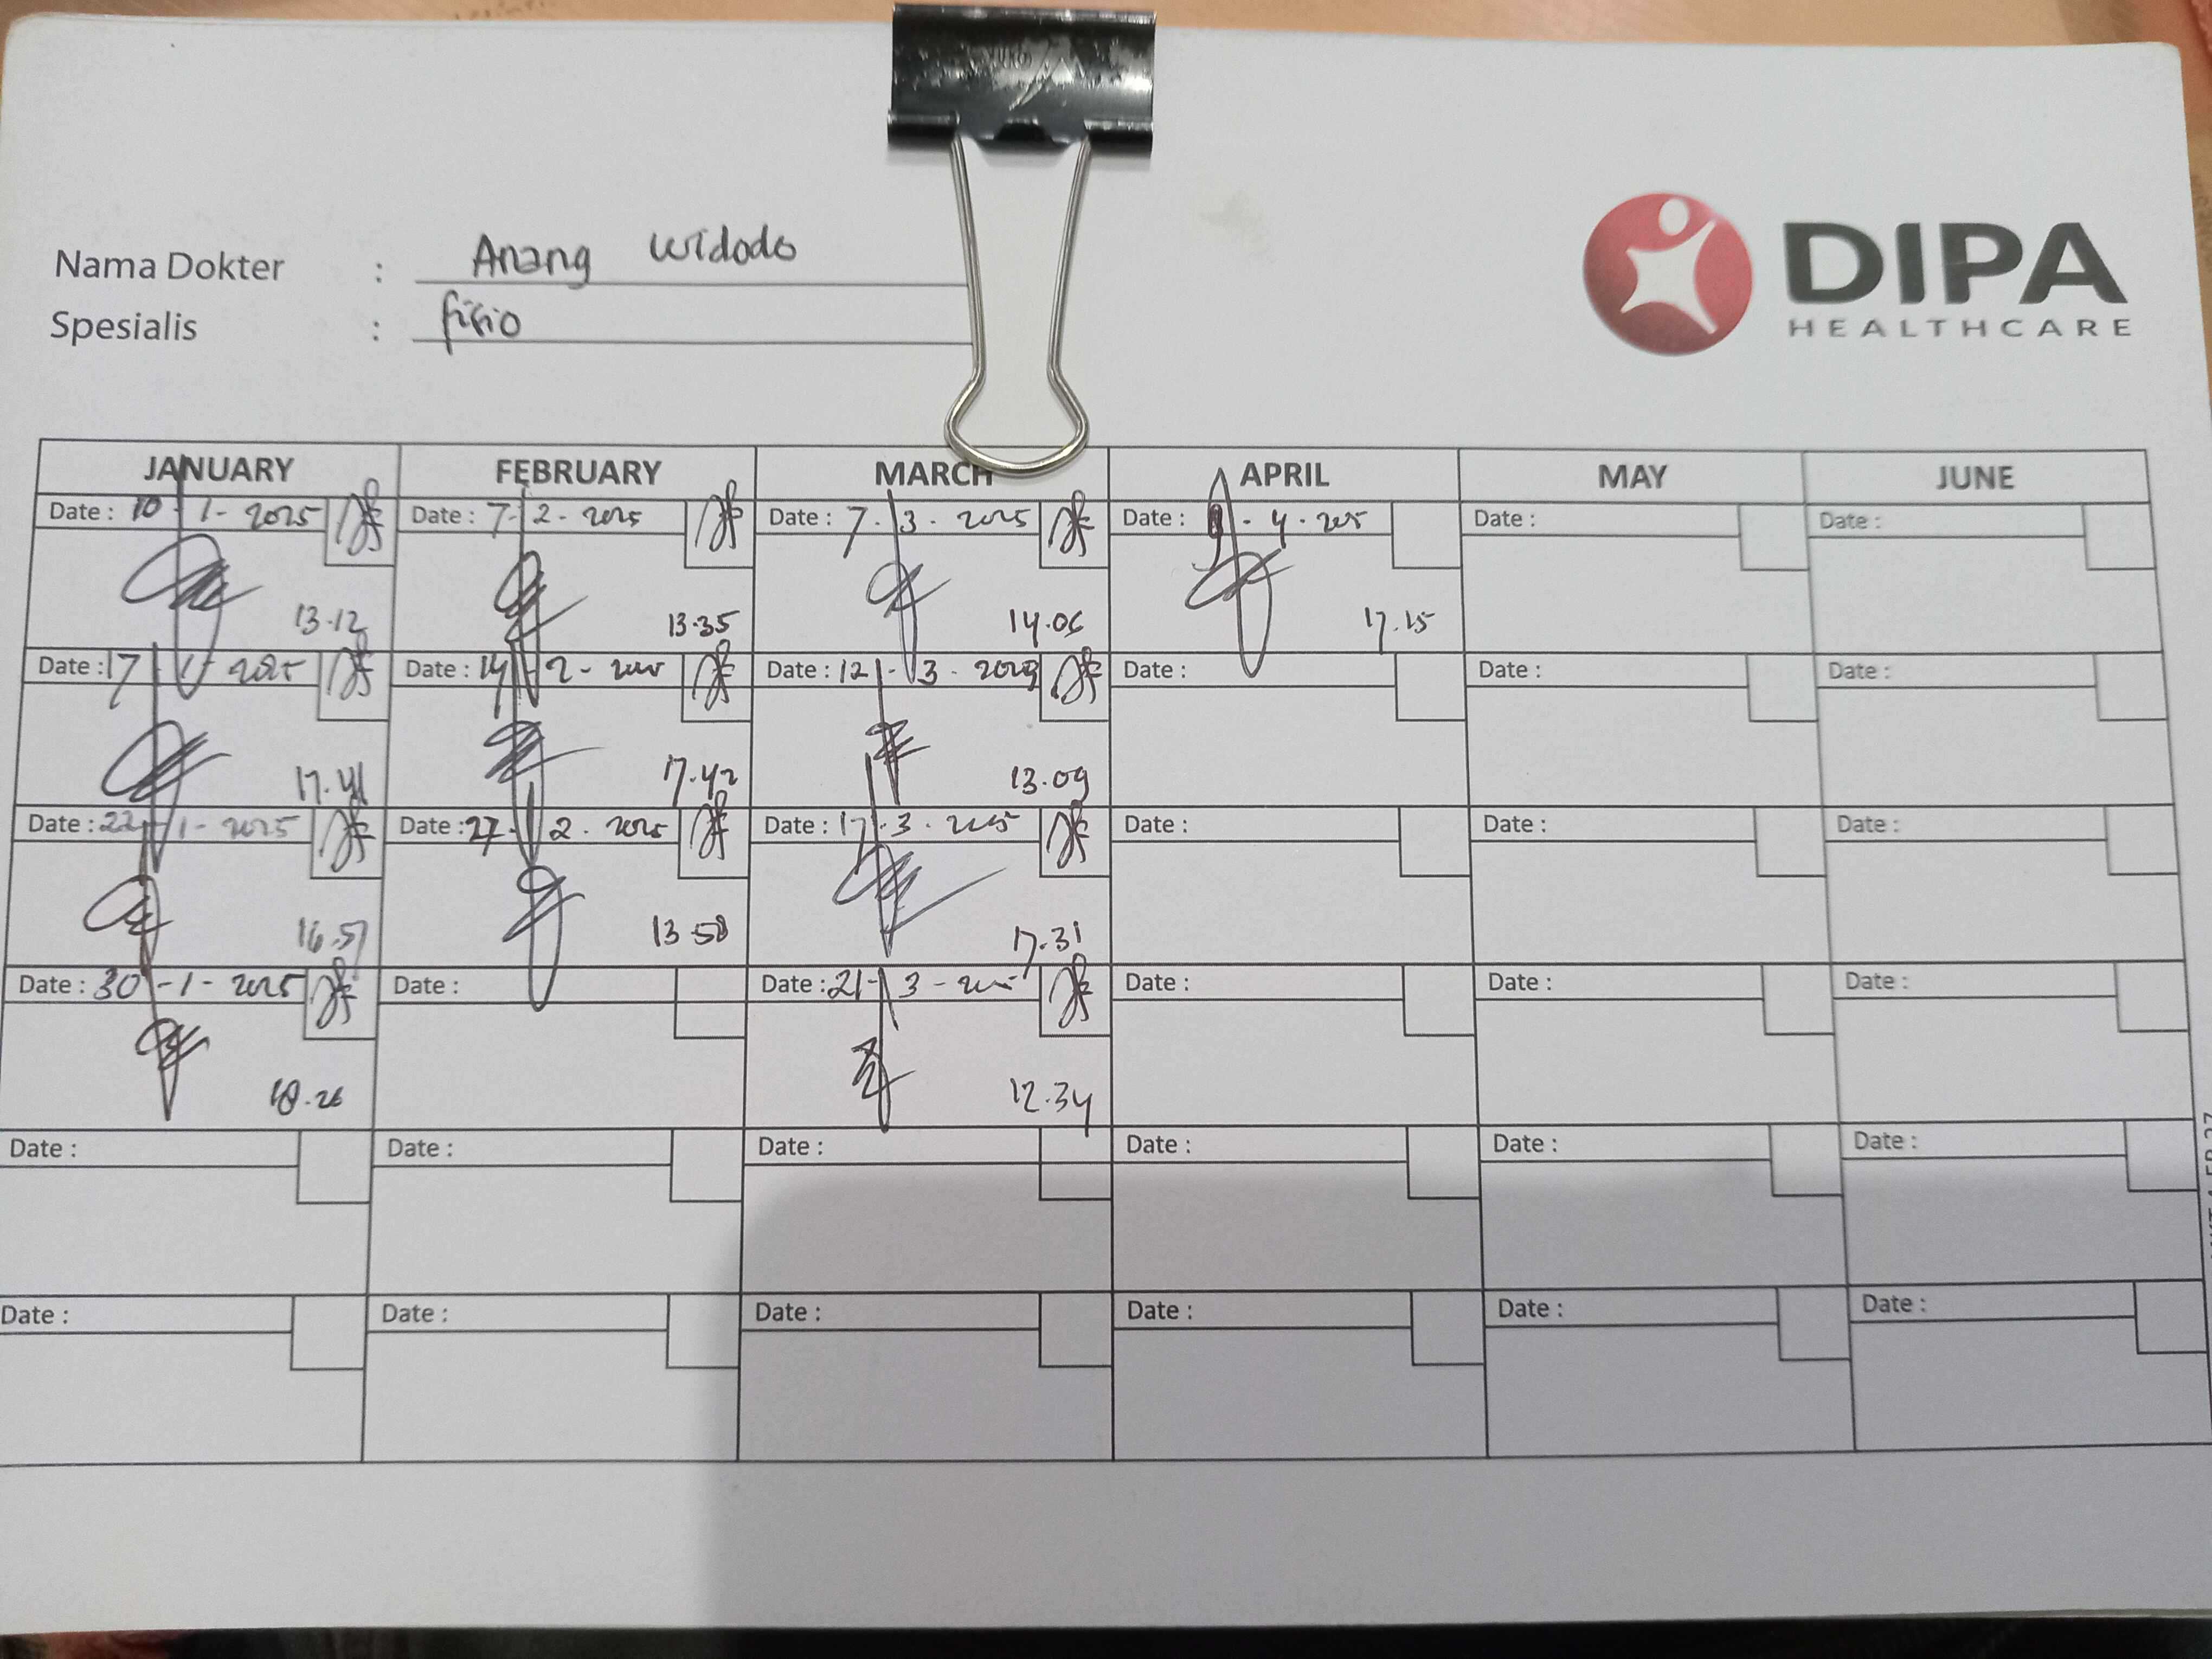 Nama Dokter : Anang Widodo
Spesialis : fisio
DIPA
HEALTHCARE
JANUARY FEBRUARY MARCH APRIL MAY JUNE
Date : 10 - 1 - 2025 Date : 7 - 2 - 2025 Date : 7 - 3 - 2025 Date : - 4 - 205 Date : Date :
13.12 13.35 14.06 17.15
Date : 17 - 1 - 2025 Date : 14 - 2 - 2025 Date : 12 - 3 - 2025 Date : Date : Date :
17.41 17.42 13.09
Date : 22 - 1 - 2025 Date : 27 - 2 - 2025 Date : 17 - 3 - 2025 Date : Date : Date :
16.57 13.58 17.31
Date : 30 - 1 - 2025 Date : Date : 21 - 3 - 2025 Date : Date : Date :
18.26 12.34
Date : Date : Date : Date : Date : Date :
Date : Date : Date : Date : Date : Date :